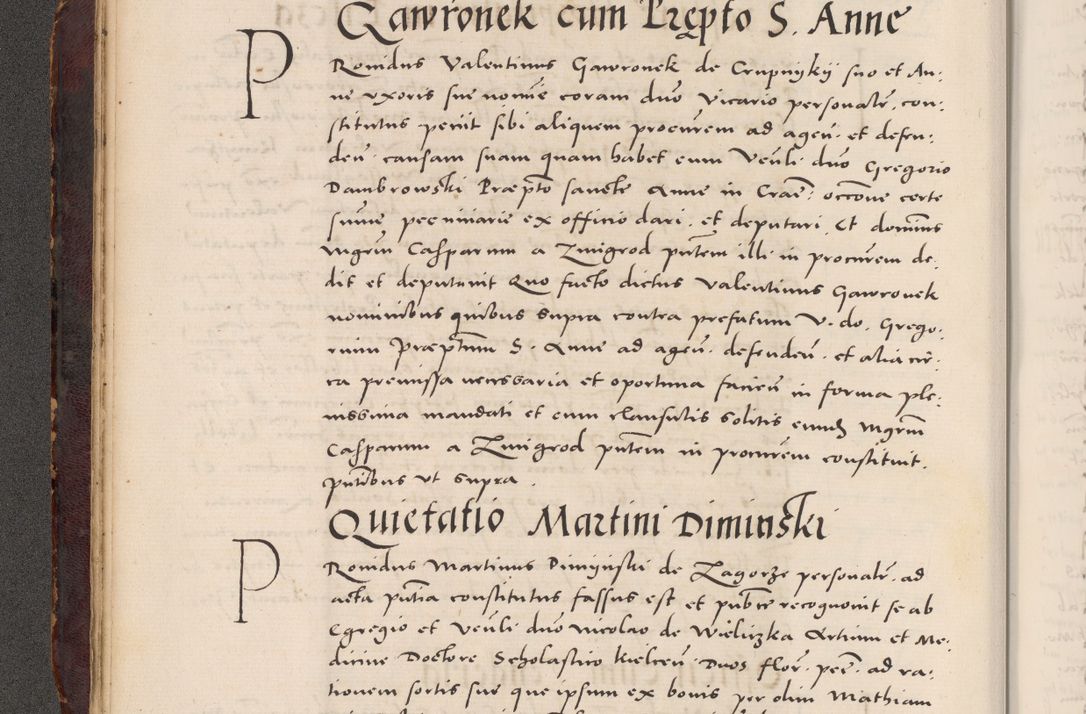 Gawronek cum Prepto S. Anne
Prouidus Valentinus Gawronek de Crupnijkij suo et An:
ne vxoris sue nomine coram dno vicario personalr. con:
stitutus petiit sibi aliquem procurem ad agen. et defen:
den. causam suam quam habet cum Venli dno Gregorio
Dambrowski Præpto sancte Anne in Crac. occone certe
summe pecuniarie ex officio dari et deputari. Et dominus
mgrm Casparum a Zmigrod pntem illi in procurem de:
dit et deputauit Quo facto dictus Valentinus Gawronek
nominibus quibus supra contra prefatum V. do. Grego:
rium Præptum S. Anne ad agen. defenden. et alia cir:
ca premissa necessaria et oportuna facien in forma ple:
nissima mandati et cum clausulis solitis eundem mgrum
Casparum a Zmigrod pntem in procurem constituit.
pntibus vt supra.
Quietatio Martini Diminski
Prouidus Martinus Dimijnski de Zagorze personalr. ad
acta pntia constitutus fassus est et publce recognouit se ab
Egregio et Venli dno Nicolao de Wieliczka Artium et Me:
dicine Doctore Scholastico Kielcen Duos flor. pec. ad ra:
tionem sortis sue que ipsum ex bonis per olim Mathiam